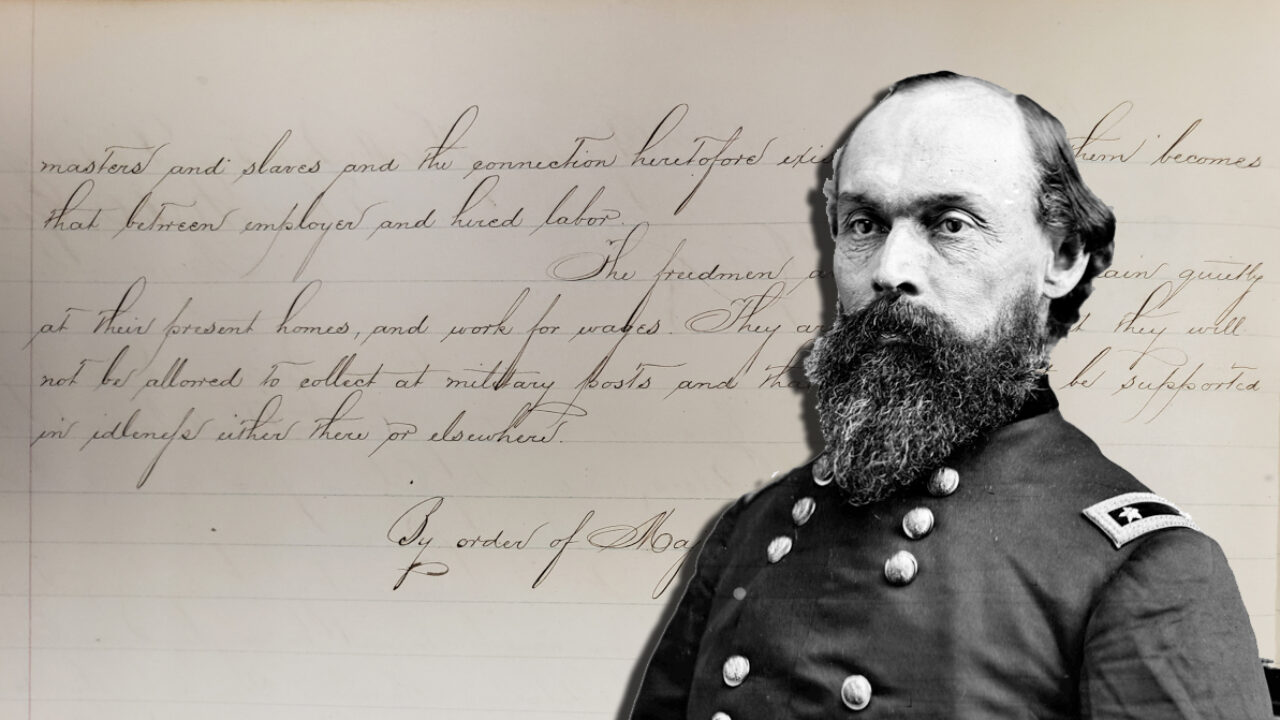 masters and slaves and the connection heretofore exis them becomes
that between employer and hired labor.
The freedmen a ain quietly
at their present homes, and work for wages. They ar t they will
not be allowed to collect at military posts and tha be supported
in idleness either there or elsewhere.
By order of Maj